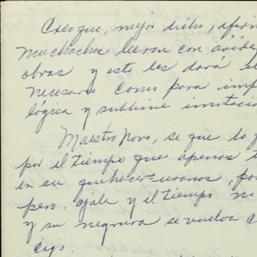 Creo que, mejor dicho, afirm
muchachos leeran con avide
obras y esto les dará el
necesario como para imp
lógica y sublime imitació
Maestro Novo, se que lo
por el tiempo que apenas
en su quehacer
pero ojalá y el tiempo no
y su negrura se vuelva c